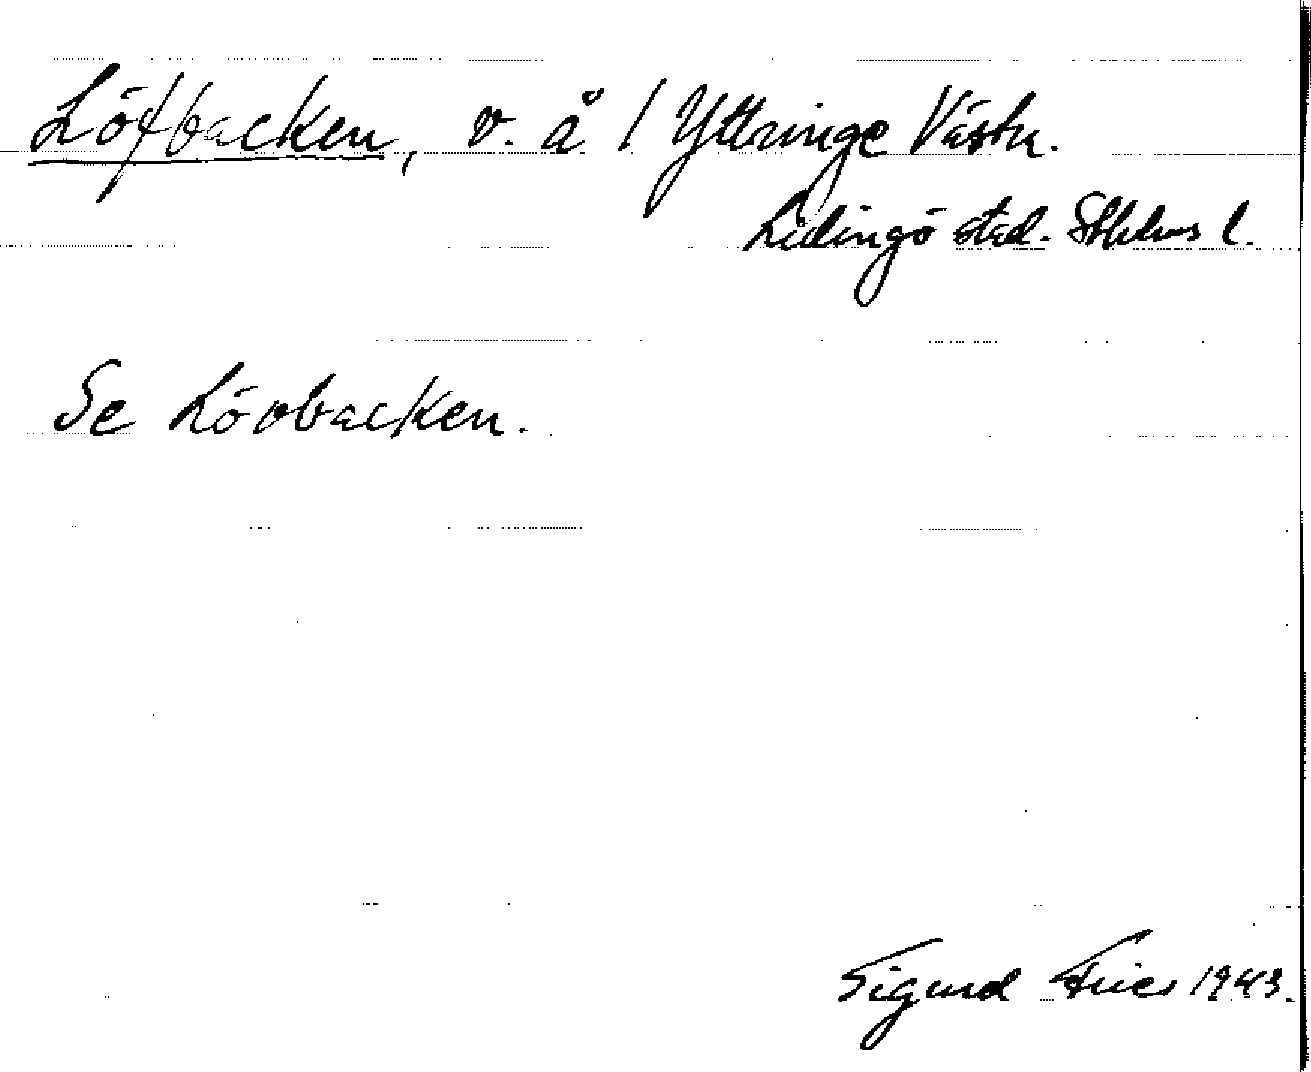 Löfbacken, v. å / Yttringe Västn.
Lidingö stad. Sthlms l.
Se Lövbacken.
Sigurd Fries 1943.